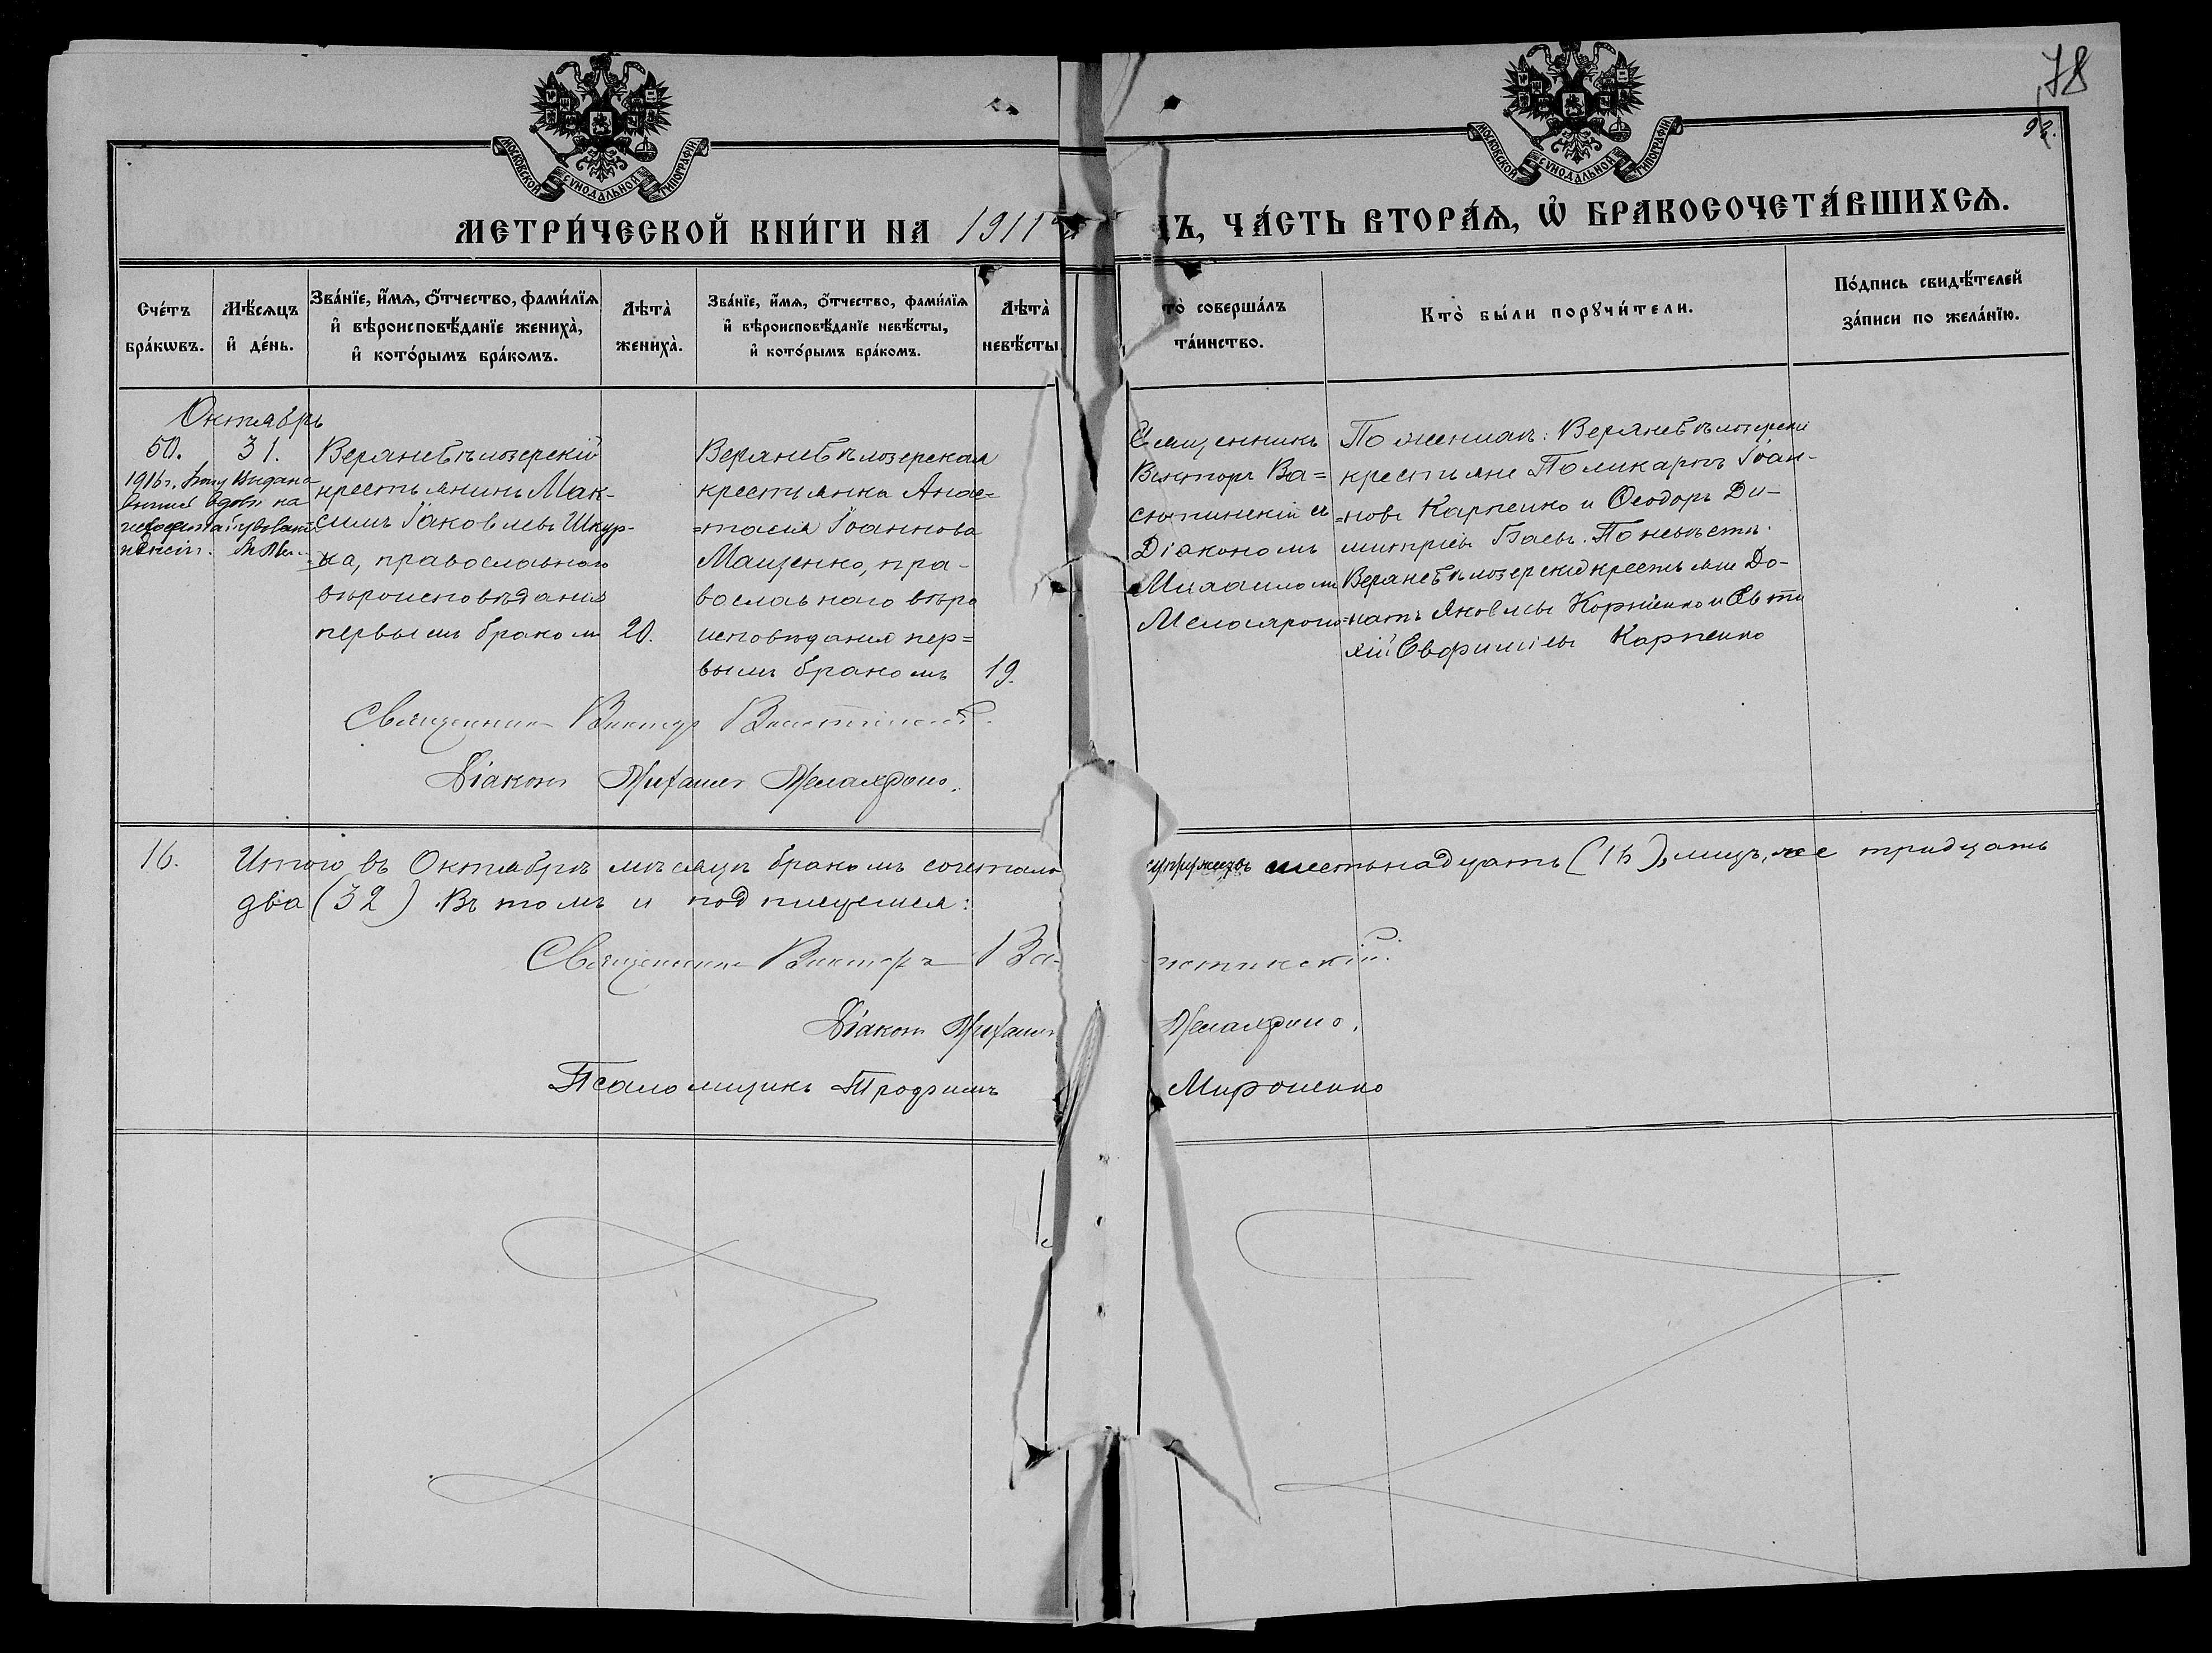 78
МОСКОВСКОЙ СѴНОДАЛЬНОЙ ТИПОГРАФІИ
МОСКОВСКОЙ СѴНОДАЛЬНОЙ ТИПОГРАФІИ
МЕТРИ́ЧЕСКОЙ КНИ́ГИ НА 1911 ДЪ, ЧА́СТЬ ВТОРА́Ѧ, Ѽ БРАКОСОЧЕТА́ВШИХСѦ.
Сче́тъ
бра́кѡвъ.
Мѣ́сѧцъ
и҆ де́нь.
Зва́нїе, и҆́мѧ, ѻ҆́тчество, фами́лїѧ
и҆ вѣроисповѣ́данїе жениха̀,
и҆ кото́рымъ бра́комъ.
Лѣта̀
жениха̀.
Зва́нїе, и҆́мѧ, ѻ҆́тчество, фами́лїѧ
и҆ вѣроисповѣ́данїе невѣ́сты,
и҆ кото́рымъ бра́комъ.
Лѣта̀
невѣ́сты
то̀ соверша́лъ
та́инство.
Кто̀ бы́ли порꙋчи́тели.
По́дпись свидѣ́телей
за́писи по жела́нїю.
Октябрь
50. 31.
1916 г. выдана
вдовѣ на
пенсіи.
Верхнебѣлозерскій
крестьянинъ Мак-
симъ Іаковлевъ Шкур-
ка, православнаго
вѣроисповѣданія
первымъ бракомъ 20.
Верхнебѣлозерская
крестьянка Анас=
=тасія Іоаннова
Мащенко, пра-
вославнаго вѣро
исповѣданія пер=
вымъ бракомъ 19.
Священникъ
Викторъ Ва=
сютинскій съ
Діакономъ
Михаиломъ
По женихѣ: Верхнебѣлозерскіе
крестьяне Поликарпъ Іоан-
=новъ Карпенко и Ѳеодоръ Ди-
митріевъ Басъ. По невѣстѣ:
Верхнебѣлозерскіе крестьяне До-
=натъ Яковлевъ Корніенко и
Евфиміевъ Карпенко
Священникъ Викторъ Васютинскій.
Діаконъ Михаилъ
16. Итого въ Октябрѣ мѣсяцѣ бракомъ сочетало супружествъ шестьнадцать (16), лицъ же тридцать
два (32) Въ томъ и подпишемся:
Священникъ Викторъ Ва- ютинскій.
Діаконъ Михаилъ
Псаломщикъ Трофимъ Мирошенко